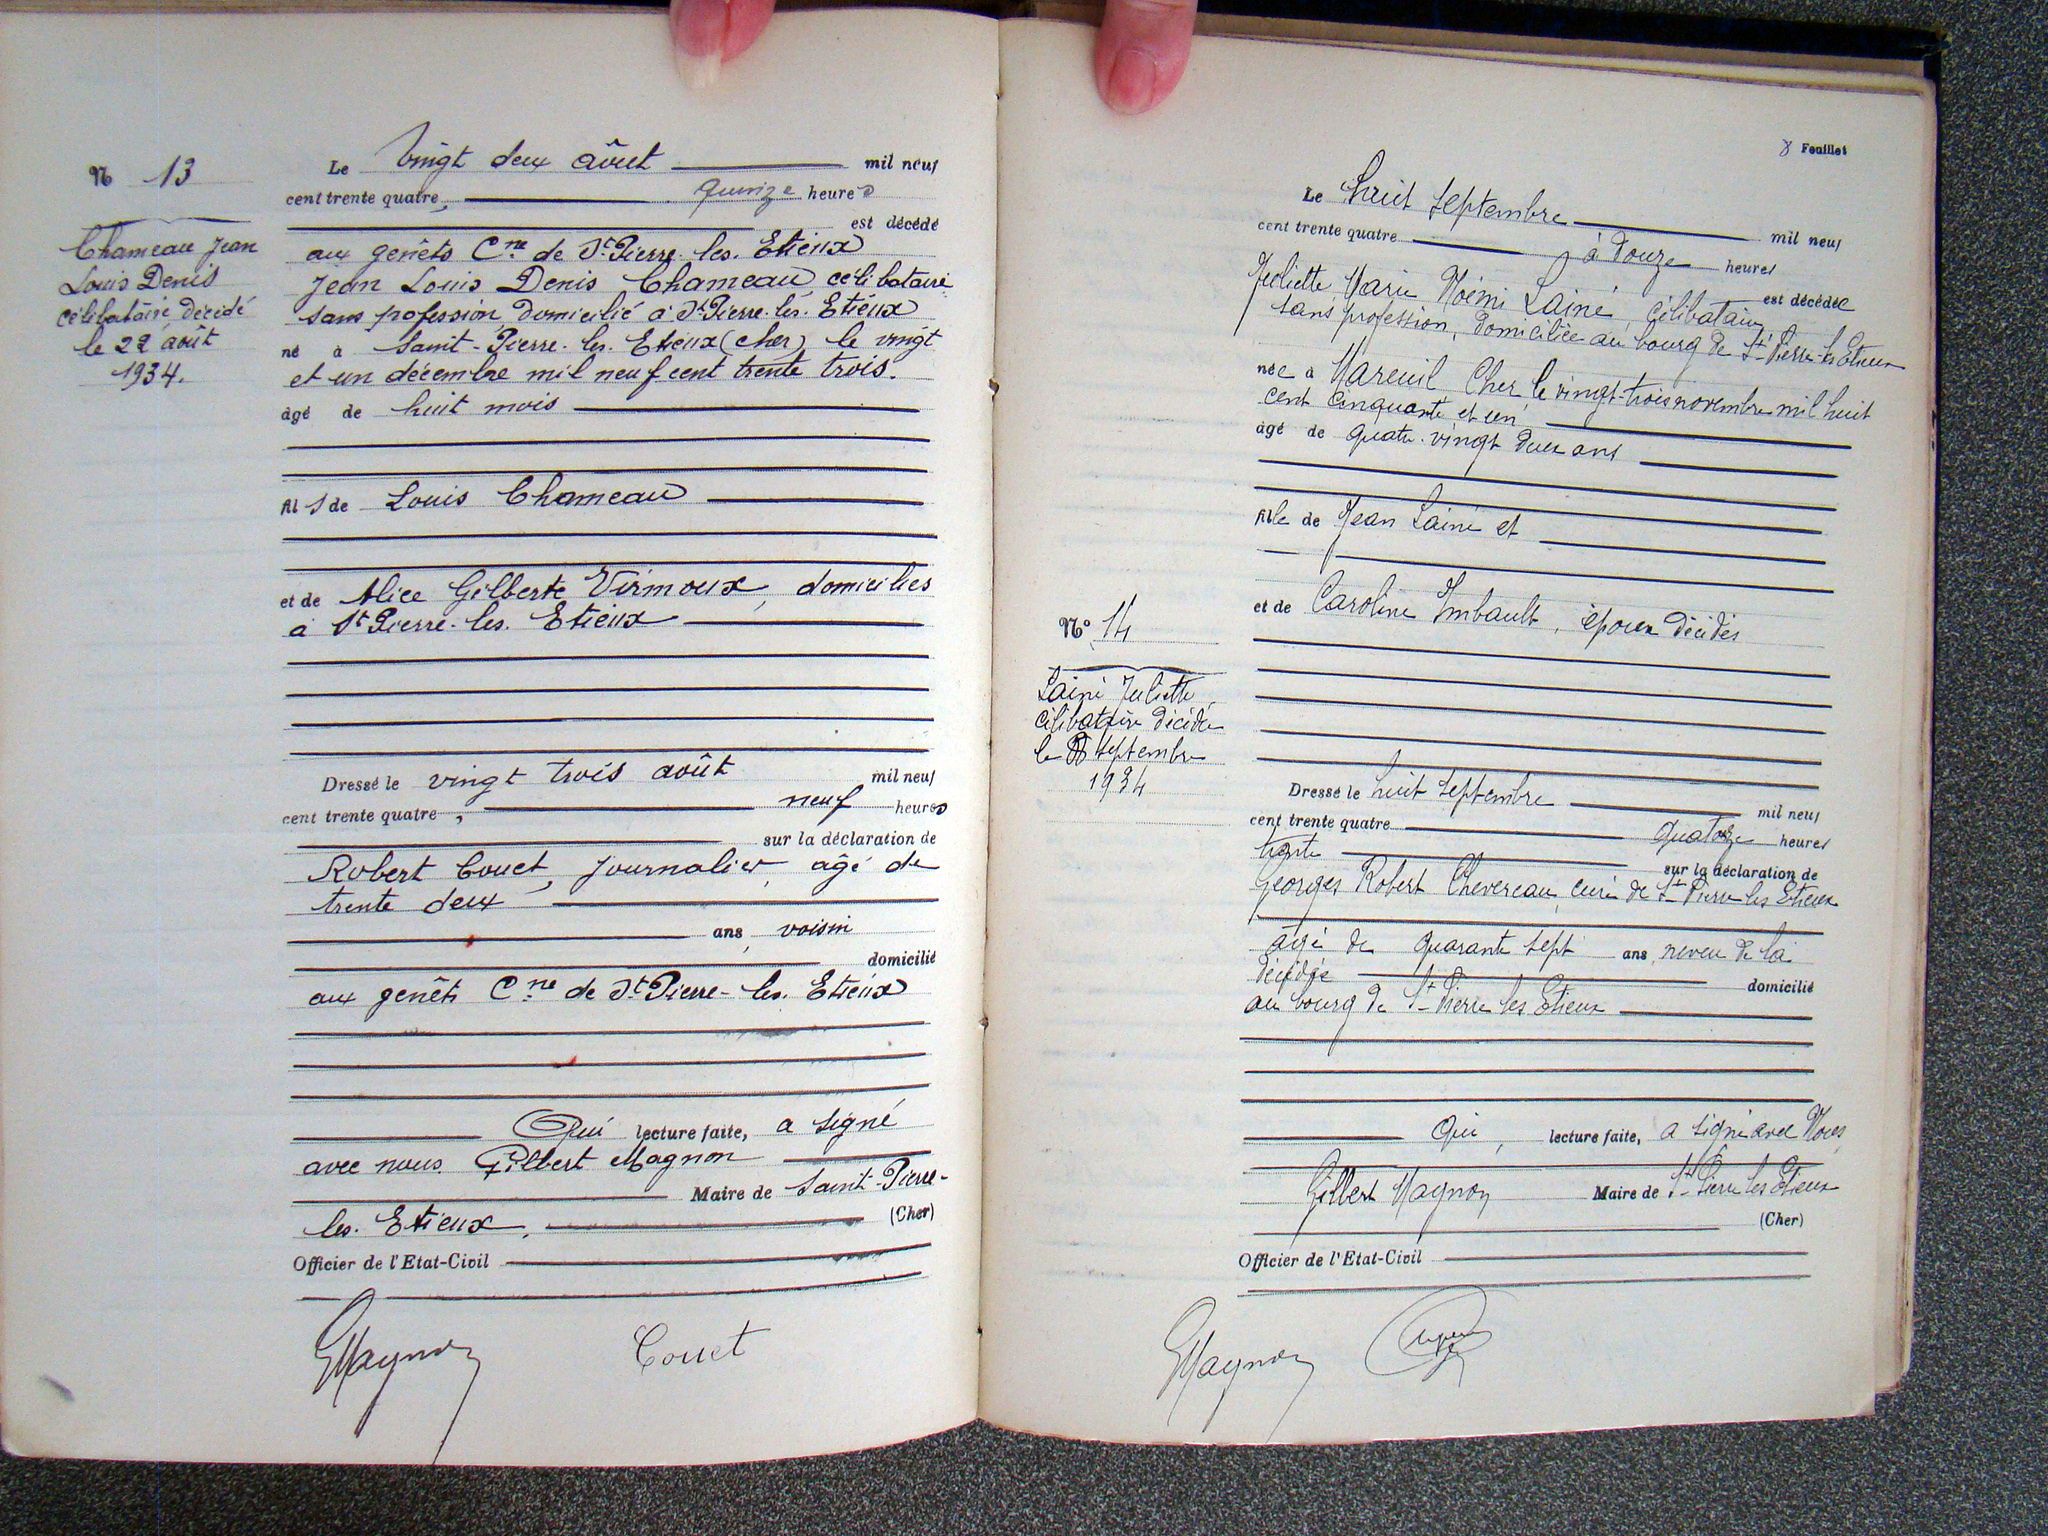 N 13
Chameau Jean
Louis Denis
célibataire décédé
le 22 août
1934.
Le vingt deux aôut mil neuf
cent trente quatre, quinze heures
est décédé
aux genêts Cne de St Pierre-les-Etieux
Jean Louis Denis Chameau célibataire
sans pofession, domicilié à St Pierre-les-Etieux
né à Saint-Pierre-les-Etieux (cher) le vingt
et un décembre mil neuf cent trente trois.
âgé de huit mois
fils de Louis Chameau
et de Alice Gilberte Virmoux, domiciliés
à St Pierre-les-Etieux
Dressé le vingt trois août mil neuf
cent trente quatre, neuf heures
sur la déclaration de
Robert Couet, journalier, âgé de
trente deux
ans, voisin
domicilié
aux genêts Cne de St Pierre-les-Etieux
Qui lecture faite, a signé
avec nous Gilbert Magnon
Maire de Saint-Pierre-
les-Etieux. (Cher)
Officier de l'Etat-Civil
GMagnon Couet
8 Feuillet
Le huit septembre mil neuf
cent trente quatre à douze heures
Juliette Marie Noémi Lainé, célibataire, est décédée
sans profession, domiciliée au bourg de St Pierre-les-Etieux
née à Mareuil Cher le vingt-trois novembre mil huit
cent cinquante et un
âgé de quatre-vingt deux ans
fille de Jean Lainé et
et de Caroline Imbault, époux décédés
No 14
Lainé Juliette
célibataire décédée
le 8 septembre
1934
Dressé le huit septembre mil neuf
cent trente quatre quatorze heures
trente sur la déclaration de
Georges Robert Chevereau, curé de St Pierre les Etieux
âgé de quarante sept ans, neveu de la
décédée domicilié
au bourg de St Pierre les Etieux
Qui, lecture faite, a signé avec Nous
Gilbert Magnon Maire de St Pierre les Etieux
(Cher)
Officier de l'Etat-Civil
GMagnon